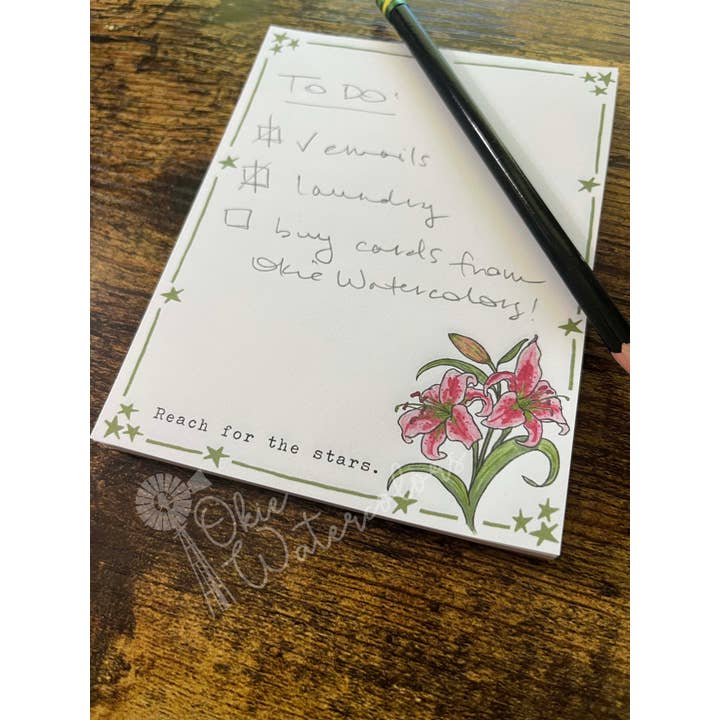 TO DO:
✓ emails
laundry
buy cards from
Okie Watercolors!
Reach for the stars.
Okie
Watercolors